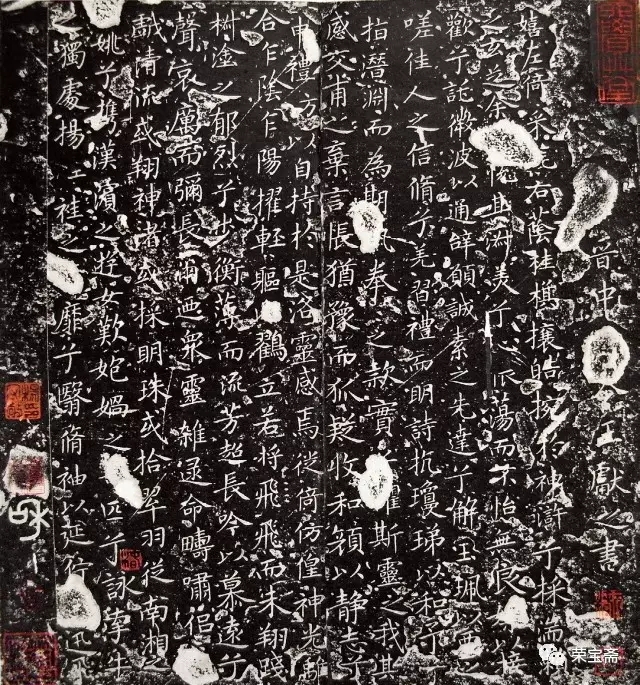 晉中令王獻之書
嬉左倚采右蔭桂攘皓捥於神滸兮採湍
之玄芝余悅其淑美兮心振蕩而不怡無良以接
歡兮託微波以通辭願誠素之先達兮解玉珮以要之
嗟佳人之信脩兮羌習禮而明詩抗瓊珶以和予兮
指潛淵而為期執奉之款實懼斯靈之我欺
感交甫之棄言悵猶豫而狐疑收和顏以静志兮
申禮防以自持於是洛靈感焉徙倚仿偟神光離
合乍陰乍陽擢輕軀鶴立若將飛而未翔踐
椒塗之郁烈兮步蘅薄而流芳超長吟以慕遠兮
聲哀厲而彌長爾迺眾靈雜遝命疇嘯侶
戲清流或翔神渚或採明珠或拾翠羽從南湘之
姚兮攜漢濱之遊女歎妃媧之匹兮詠牽牛
之獨處揚袿之靡兮翳脩袖以延佇迅飛
荣宝斋